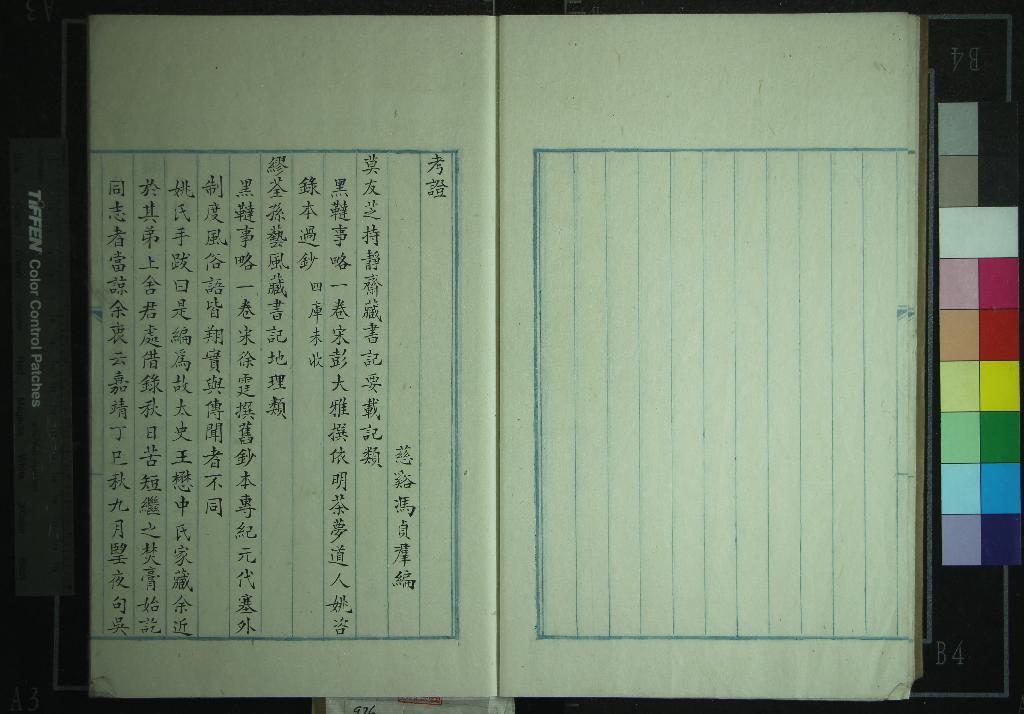 考證
慈谿馮貞羣編
莫友芝持靜齋藏書記要載記類
黑韃事略一卷宋彭大雅撰依明茶夢道人姚咨
錄本過鈔 四庫未收
繆荃孫藝風藏書記地理類
黑韃事略一卷宋徐霆撰舊鈔本專紀元代塞外
制度風俗語皆翔實與傳聞者不同
姚氏手跋曰是編爲故太史王懋中氏家藏余近
於其弟上舍君處借錄秋日苦短繼之焚膏始訖
同志者當諒余衷云嘉靖丁巳秋九月望夜句吳
TIFFEN Color Control Patches
B4
B4
A3
A3
926